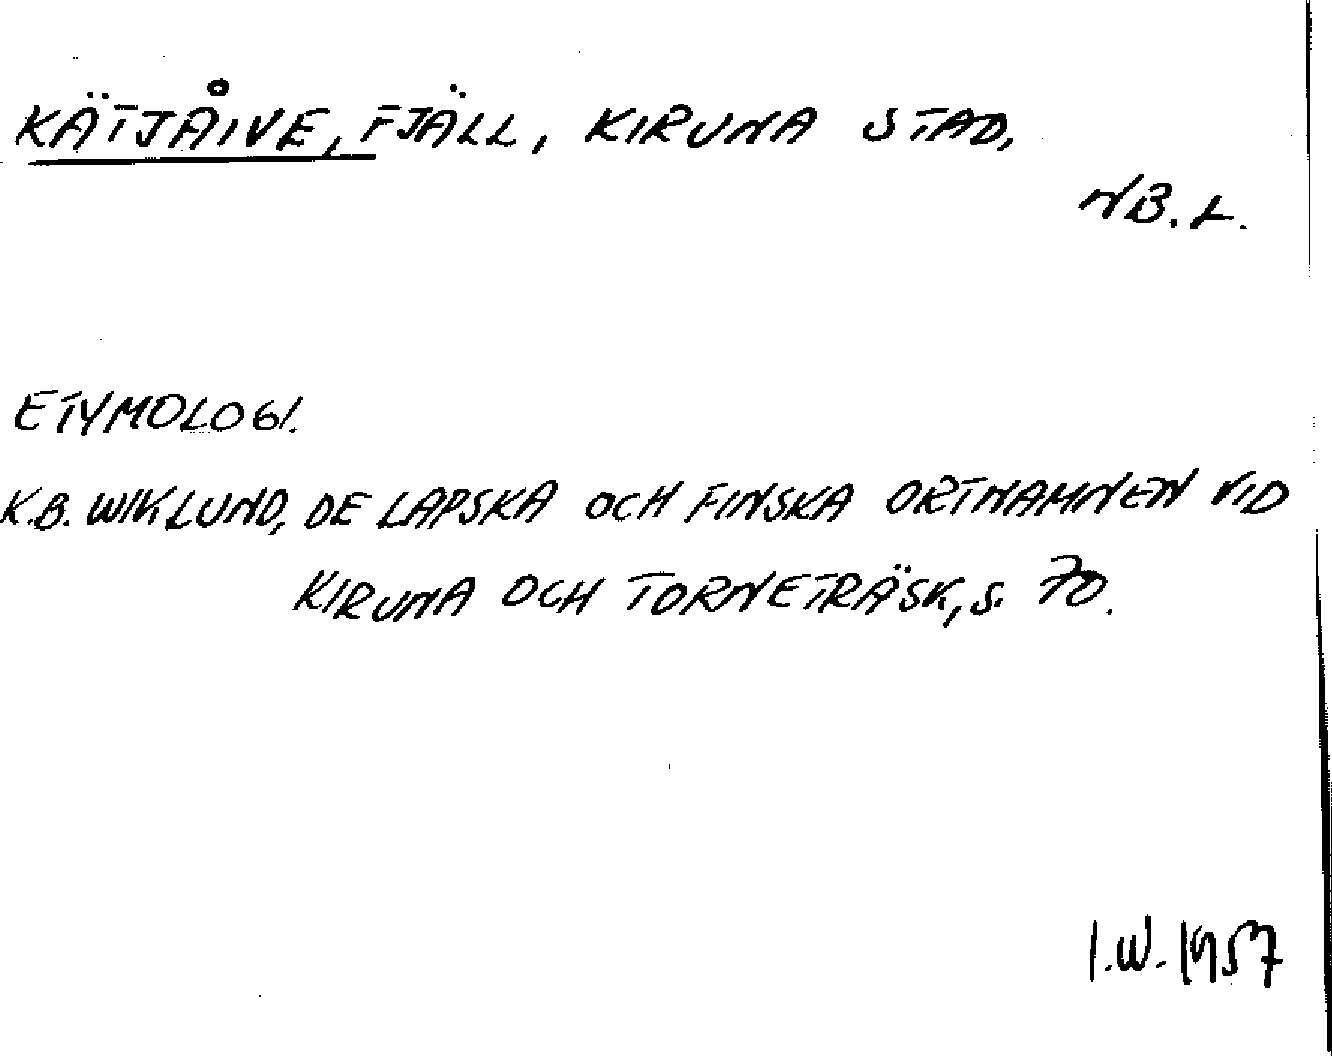 KÄTJÅIVE, FJÄLL, KIRUNA STAD,
NB. L.
ETYMOLOGI.
K.B. WIKLUND, DE LAPSKA OCH FINSKA ORTNAMNEN VID
KIRUNA OCH TORNETRÄSK, S. 70.
I.W. 1957